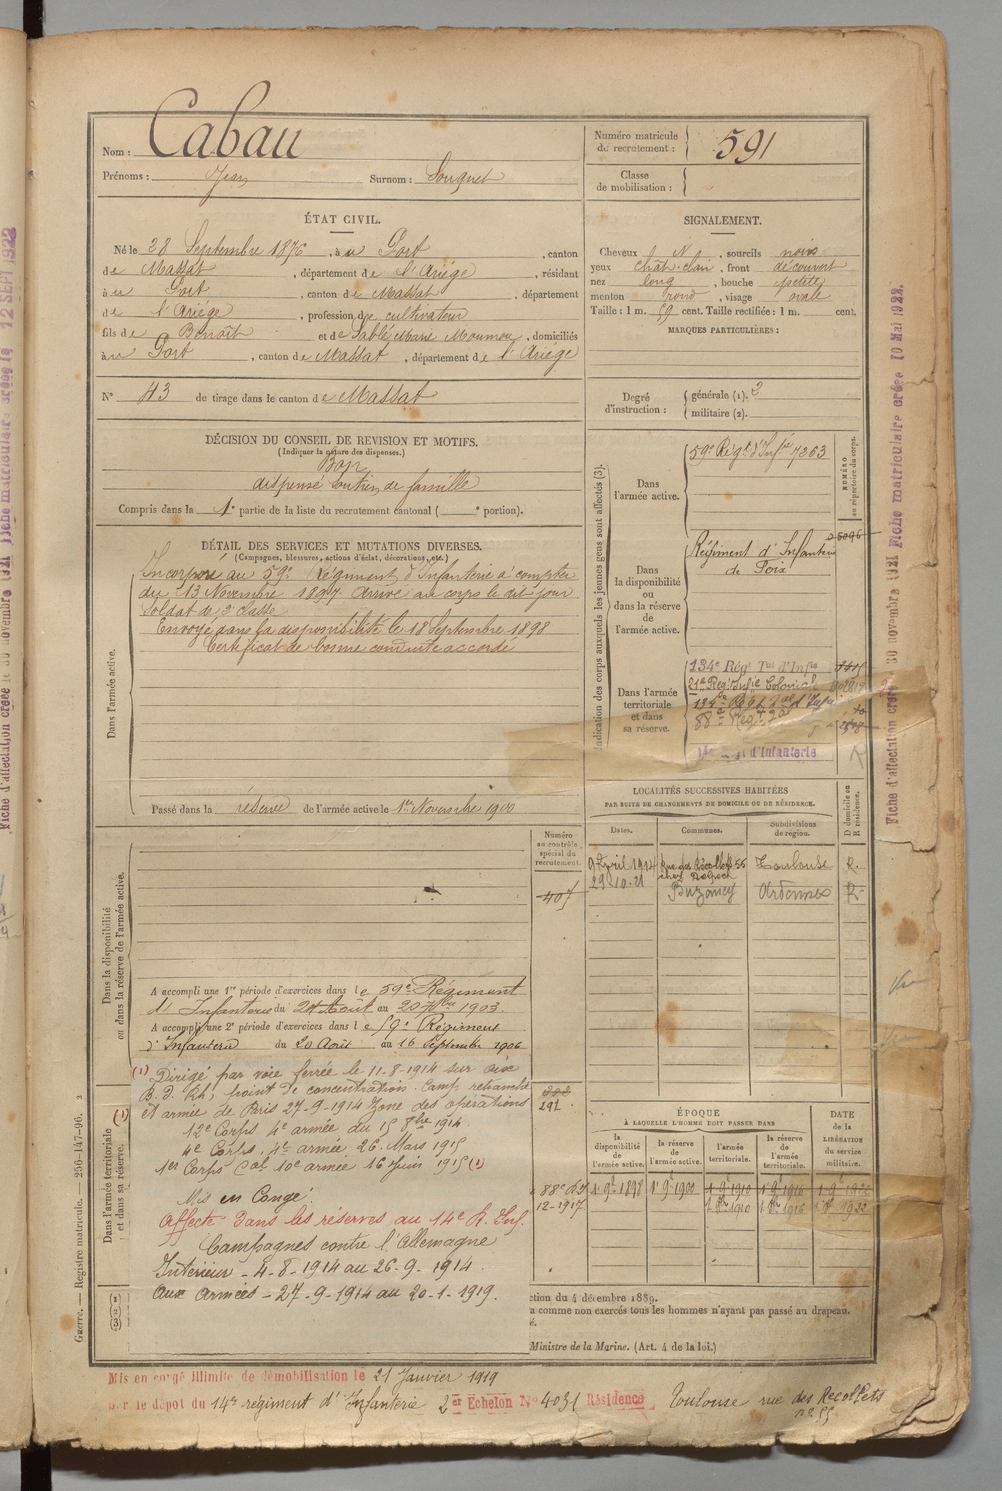 Nom : Cabau
Prénoms : Jean Surnom : Souquet
Numéro matricule
de recrutement : 591
Classe
de mobilisation :
ÉTAT CIVIL.
Né le 28 Septembre 1876, à u Port, canton
de Massat, département de l'Ariège, résidant
à u Port, canton de Massat, département
de l'Ariège, profession de cultivateur
fils de Benoît et de Sablé Marie Moumou, domiciliés
à u Port, canton de Massat, département de l'Ariège
N° 43 de tirage dans le canton de Massat
SIGNALEMENT.
Cheveux N, sourcils noirs
yeux chât. clair, front découvert
nez long, bouche petite
menton rond, visage ovale
Taille : 1 m. 59 cent. Taille rectifiée : 1 m. cent.
MARQUES PARTICULIÈRES :
Degré
d'instruction :
générale (1). 2
militaire (2).
DÉCISION DU CONSEIL DE REVISION ET MOTIFS.
(Indiquer la nature des dispenses.)
Bon
dispensé soutien de famille
Compris dans la 1e partie de la liste du recrutement cantonal ( e portion).
DÉTAIL DES SERVICES ET MUTATIONS DIVERSES.
(Campagnes, blessures, actions d'éclat, décorations, etc.)
Dans l'armée active.
Incorporé au 59e Régiment d'Infanterie à compter
du 13 Novembre 1897. Arrivé au corps le dit jour
Soldat de 2e classe
Envoyé dans la disponibilité le 18 Septembre 1898
Certificat de bonne conduite accordé
Passé dans la réserve de l'armée active le 1er Novembre 1900
Indication des corps auxquels les jeunes gens sont affectés (3).
NUMÉRO
au répertoire du corps.
Dans
l'armée active.
59e Régt d'Infrie 7263
Dans
la disponibilité
ou
dans la réserve
de
l'armée active.
Régiment d'Infanterie
de Foix
5096
Dans l'armée
territoriale
et dans
sa réserve.
134e Régt Tal d'Infie
21e Régt Infie Coloniale
134e Régt Tal d'Infie
88e Régt
d'Infanterie
LOCALITÉS SUCCESSIVES HABITÉES
PAR SUITE DE CHANGEMENTS DE DOMICILE OU DE RÉSIDENCE.
Dates. Communes. Subdivisions
de région. D domicile ou
R résidence.
9 Avril 1914 Rue des Récollets 55 Toulouse R.
chez Delpech
29-10-21 Buzancy Ardennes R.
Dans la disponibilité
ou dans la réserve de l'armée active.
Numéro
au contrôle
spécial du
recrutement.
407
A accompli une 1re période d'exercices dans le 59e Régiment
d'Infanterie du 24 Août au 20 7bre 1903.
A accompli une 2e période d'exercices dans le 59e Régiment
d'Infanterie du 20 Août au 16 Septembre 1906
Dans l'armée territoriale
et dans sa réserve.
(1) Dirigé par voie ferrée le 11-8-1914 sur
point de concentration. Camp retranché
et armée de Paris 27-9-1914 Zone des opérations
12e Corps 4e armée du 15 8bre 1914.
4e Corps. 4e armée 26 Mars 1915
1er Corps Cal 10e armée 16 Juin 1915 (1)
Mis en Congé.
Affecté dans les réserves au 14e R. Inf.
Campagnes contre l'Allemagne
Intérieur - 4-8-1914 au 26-9-1914.
Aux Armées - 27-9-1914 au 20-1-1919.
ÉPOQUE
À LAQUELLE L'HOMME DOIT PASSER DANS
la
disponibilité
de
l'armée active.
la réserve
de
l'armée active.
l'armée
territoriale.
la réserve
de
l'armée
territoriale.
DATE
de la
LIBÉRATION
du service
militaire.
1 9bre 1898 1 9bre 1900 1 9bre 1910 1 9bre 1916 1 9bre 1922
12-1917 1 8bre 1910 1 8bre 1916 1922
ction du 4 décembre 1889.
a comme non exercés tous les hommes n'ayant pas passé au drapeau.
Ministre de la Marine. (Art. 4 de la loi.)
Mis en congé illimité de démobilisation le 21 Janvier 1919
par le dépôt du 14e régiment d'Infanterie 2er Echelon N° 4031 Résidence Toulouse rue des Recollets
n° 55
Guerre. — Registre matricule. — 256-147-96.
Fiche d'affectation créée le 30 novembre 1921
Fiche matriculaire créée 10 Mai 1922.
Fiche d'affectation créée le 30 novembre 1921 Fiche matriculaire créée le 12 SEPT 1922